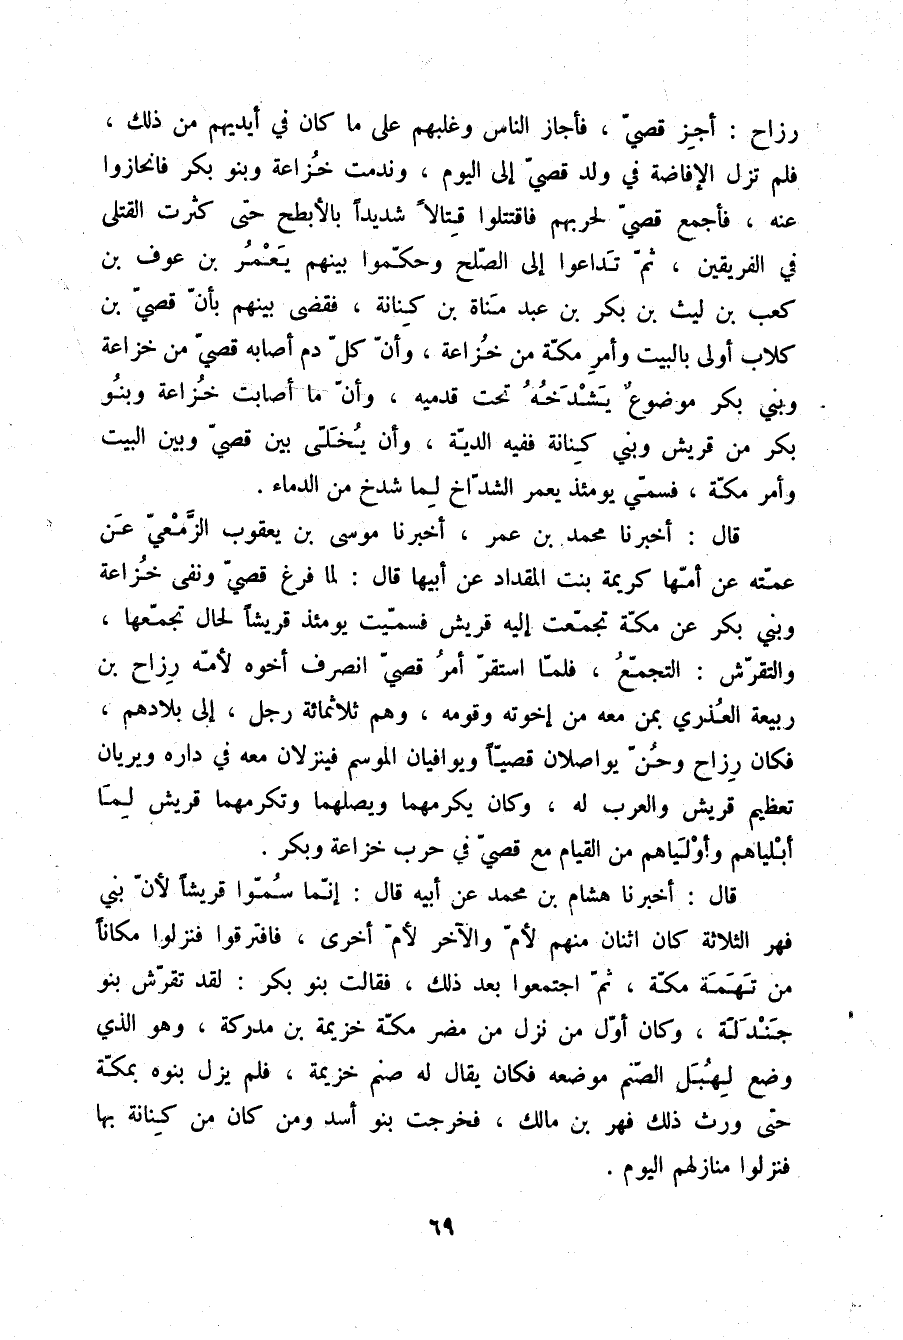 رزاح : أجِز قصيّ ، فأجاز الناس وغلبهم على ما كان في أيديهم من ذلك ،
فلم تزل الإفاضة في ولد قصيّ إلى اليوم ، وندمت خُزاعة وبنو بكر فانحازوا
عنه ، فأجمع قصيّ لحربهم فاقتتلوا قِتالاً شديداً بالأبطح حتّى كثرت القتلى
في الفريقين ، ثمّ تَداعوا إلى الصّلح وحكّموا بينهم يَعْمُرُ بن عوف بن
كعب بن ليث بن بكر بن عبد مَناة بن كِنانة ، فقضى بينهم بأنّ قصيّ بن
كلاب أولى بالبيت وأمرِ مكّة من خُزاعة ، وأنّ كلّ دم أصابه قصيّ من خزاعة
وبني بكر موضوعٌ يَشْدَخُهُ تحت قدميه ، وأنّ ما أصابت خُزاعة وبنُو
بكر من قريش وبني كِنانة ففيه الديّة ، وأن يُخَلّى بين قصيّ وبين البيت
وأمر مكّة ، فسمّي يومئذ يعمر الشدّاخ لِما شدخ من الدماء .
قال : أخبرنا محمد بن عمر ، أخبرنا موسى بن يعقوب الزَّمْعيّ عَن
عمّته عن أمّها كريمة بنت المقداد عن أبيها قال : لما فرغ قصيّ ونفى خُزاعة
وبني بكر عن مكّة تجمّعت إليه قريش فسمّيت يومئذ قريشاً لحال تجمّعها ،
والتقرّش : التجمّعُ ، فلمّا استقرّ أمرُ قصيّ انصرف أخوه لأمّه رِزاح بن
ربيعة العُذري بمن معه من إخوته وقومه ، وهم ثلاثمائة رجل ، إلى بلادهم ،
فكان رِزاح وحُنّ يواصلان قصيّاً ويوافيان الموسم فينزلان معه في داره ويريان
تعظيم قريش والعرب له ، وكان يكرمهما ويصلهما وتكرمهما قريش لِمَا
أبْلياهم وأوْلَياهم من القيام مع قصيّ في حرب خزاعة وبكر .
قال : أخبرنا هشام بن محمد عن أبيه قال : إنّما سُمّوا قريشاً لأنّ بني
فهر الثلاثة كان اثنان منهم لأمّ والآخر لأمّ أخرى ، فافترقوا فنزلوا مكاناً
من تَهَمَة مكّة ، ثمّ اجتمعوا بعد ذلك ، فقالت بنو بكر : لقد تقرّش بنو
جَنْدَلَة ، وكان أوّل من نزل من مضر مكّة خزيمة بن مدركة ، وهو الذي
وضع لِهُبَل الصّنم موضعه فكان يقال له صنم خزيمة ، فلم يزل بنوه بمكّة
حتّى ورث ذلك فهر بن مالك ، فخرجت بنو أسد ومن كان من كِنانة بها
فنزلوا منازلهم اليوم .
٦٩